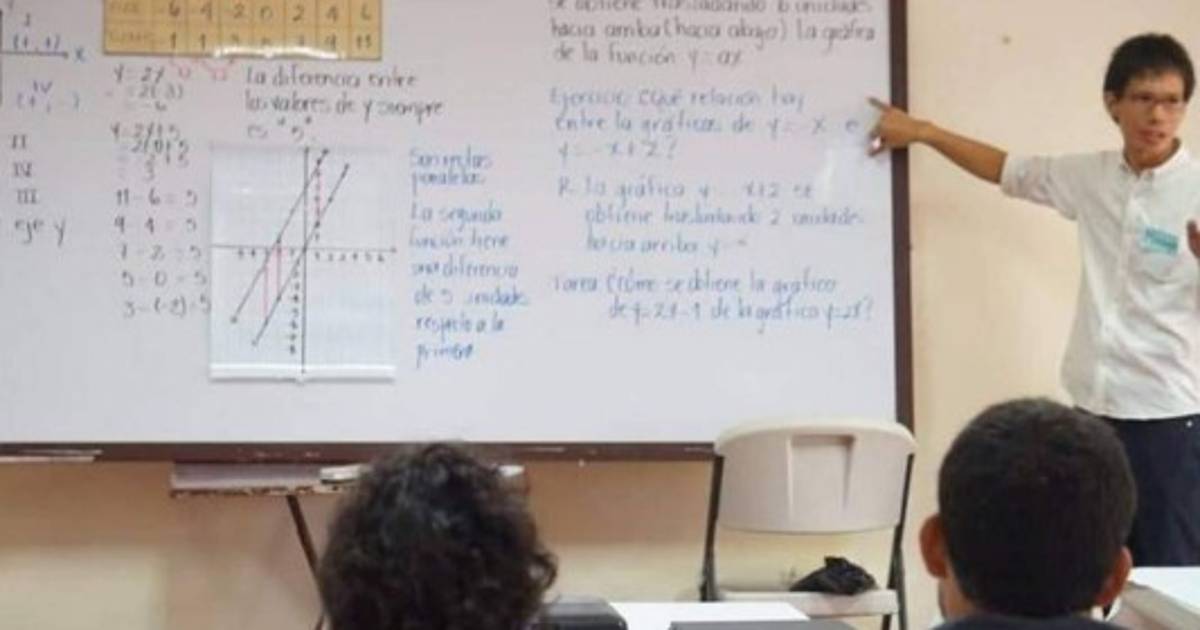 -6 -4 -2 0 2 4 6
I
(+, +) x
IV
(+, -)
II
IV
III
eje y
y = 2x
= 2(-3)
= -6
y = 2x+5
11 - 6 = 5
9 - 4 = 5
7 - 2 = 5
5 - 0 = 5
3 - (-2) = 5
La diferencia entre
los valores de y siempre
es "5"
Son rectas
paralelas
La segunda
función tiene
una diferencia
de 5 unidades
respecto a la
primera
se obtiene trasladando b unidades
hacia arriba (hacia abajo) la gráfica
de la función y = ax
Ejercicio: ¿Qué relación hay
entre la gráficas de y = -x e
y = -x+2?
R. La gráfica y = -x+2 se
obtiene trasladando 2 unidades
hacia arriba y =
Tarea ¿Cómo se obtiene la gráfica
de y=2x-1 de la gráfica y=2x?